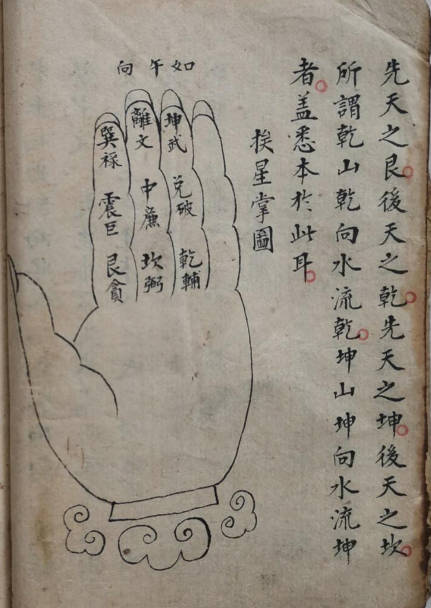 先天之艮後天之乾先天之坤後天之坎
所謂乾山乾向水流乾坤山坤向水流坤
者蓋悉本於此耳
挨星掌圖
如午向
坤武
兌破
乾輔
離文
中廉
坎弼
巽祿
震巨
艮貪